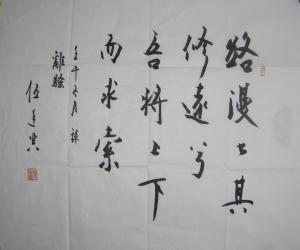 路漫々其
修遠兮
吾將上下
而求索
壬午冬月 錄
離騷
伍